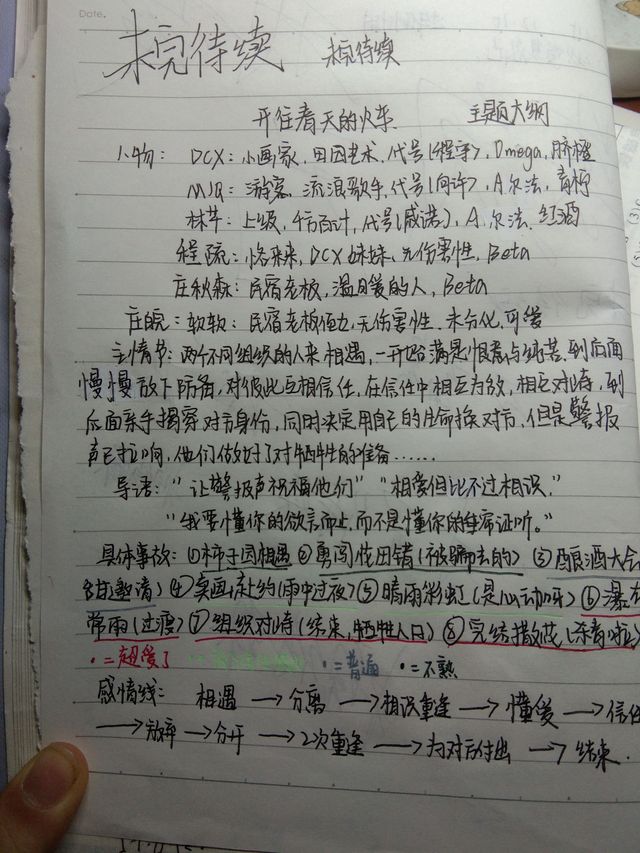 Date.
未完待续 未完待续
开往春天的火车 主题大纲
人物: DCX: 小画家, 田园艺术, 代号[程季], Omega, 脐橙
MJQ: 游客, 流浪歌手, 代号[向许], A尔法, 青柠
林芊: 上级, 千方百计, 代号[感诺], A尔法, 红酒
程疏: 恹恹, DCX妹妹, 无伤害性, Beta
庄秋森: 民宿老板, 温暖的人, Beta
庄皖: 软软: 民宿老板侄女, 无伤害性, 未分化, 可爱
主情节: 两个不同组织的人来相遇, 一开始满是恨意与纯苦, 到后面
慢慢放下防备, 对彼此互相信任, 在信任中相互为敌, 相互对峙, 到
后面亲手揭穿对方身份, 同时决定用自己的生命换对方, 但是警报
声已打响, 他们做好了对牺牲的准备……
导语: “让警报声祝福他们” “相爱但比不过相识.”
“我要懂你的欲言而止, 而不是懂你的呈席证听。”
具体事故: ①柿子园相遇 ②勇闯花田错(被骗去的) ③酿酒大会
邀请) ④卖画赴约(雨中过夜) ⑤晴雨彩虹(是心动呀) ⑥瀑布
常雨(过渡) ⑦组织对峙(结束, 牺牲人日) ⑧完结撒花(杀青啦)
·=超爱了 ·=普通 ·=不熟
感情线: 相遇 → 分离 → 相识重逢 → 懂爱 → 信任
→ 放弃 → 分开 → 2次重逢 → 为对方付出 → 结束.